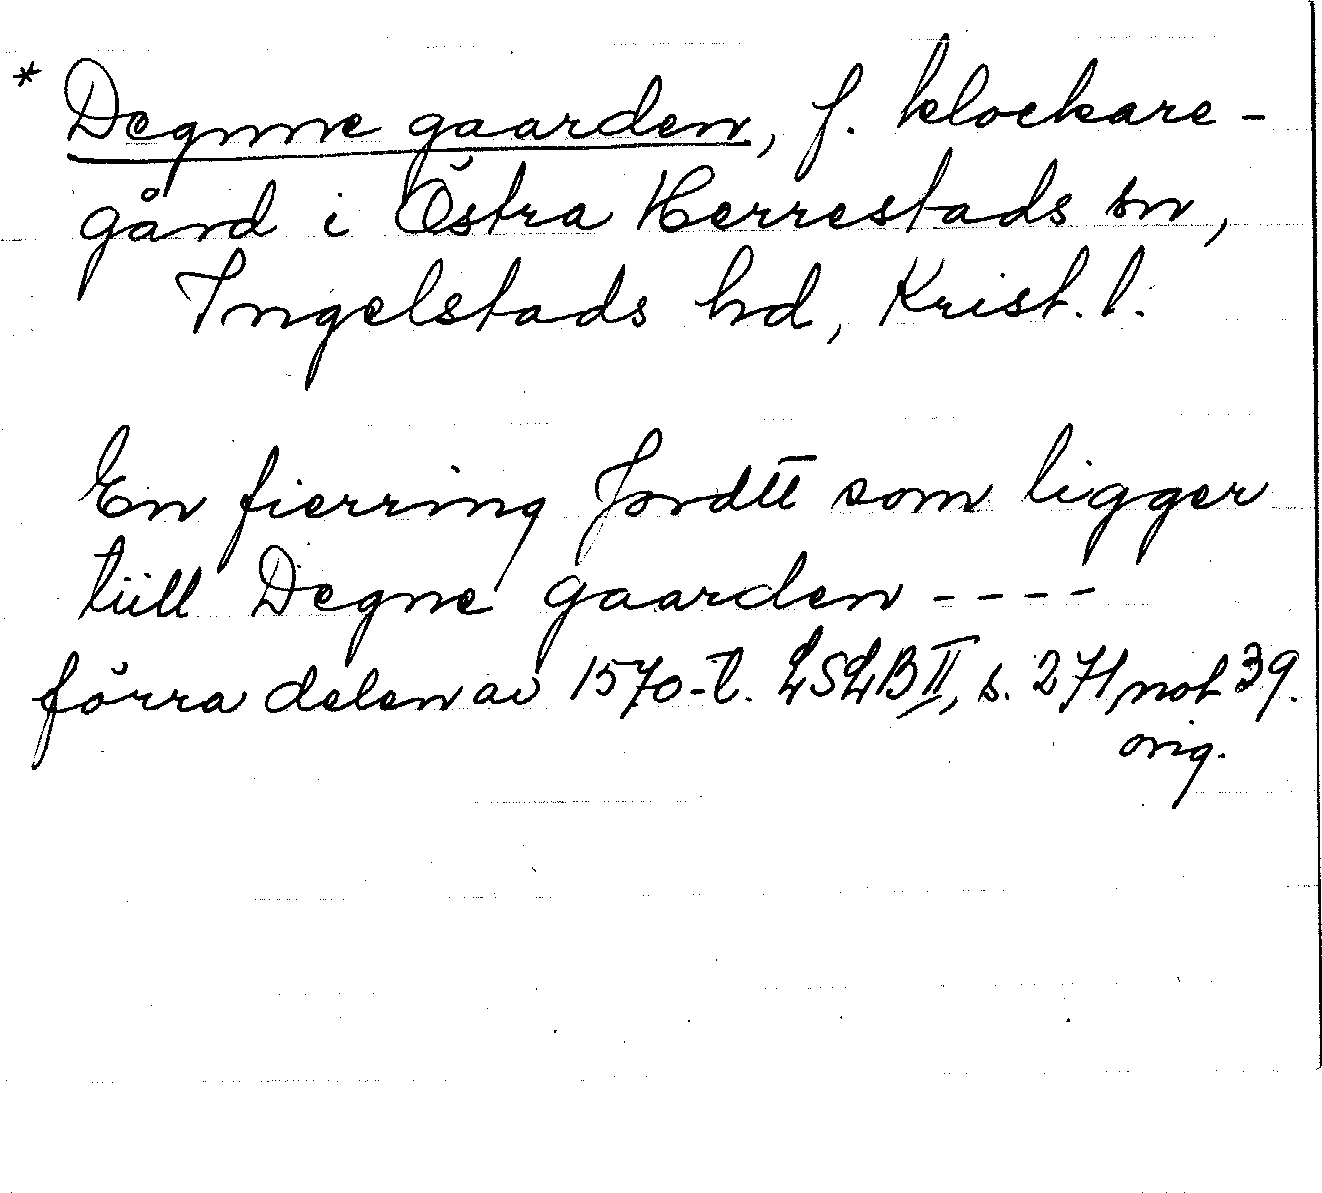 * Degnne gaarden, f. klockare-
gård i Östra Herrestads sn,
Ingelstads hd, Krist. l.
En fierring Jordtt som ligger
tiill Degne gaarden ----
förra delen av 1570-t. LSLB II, s. 271, not 39.
orig.